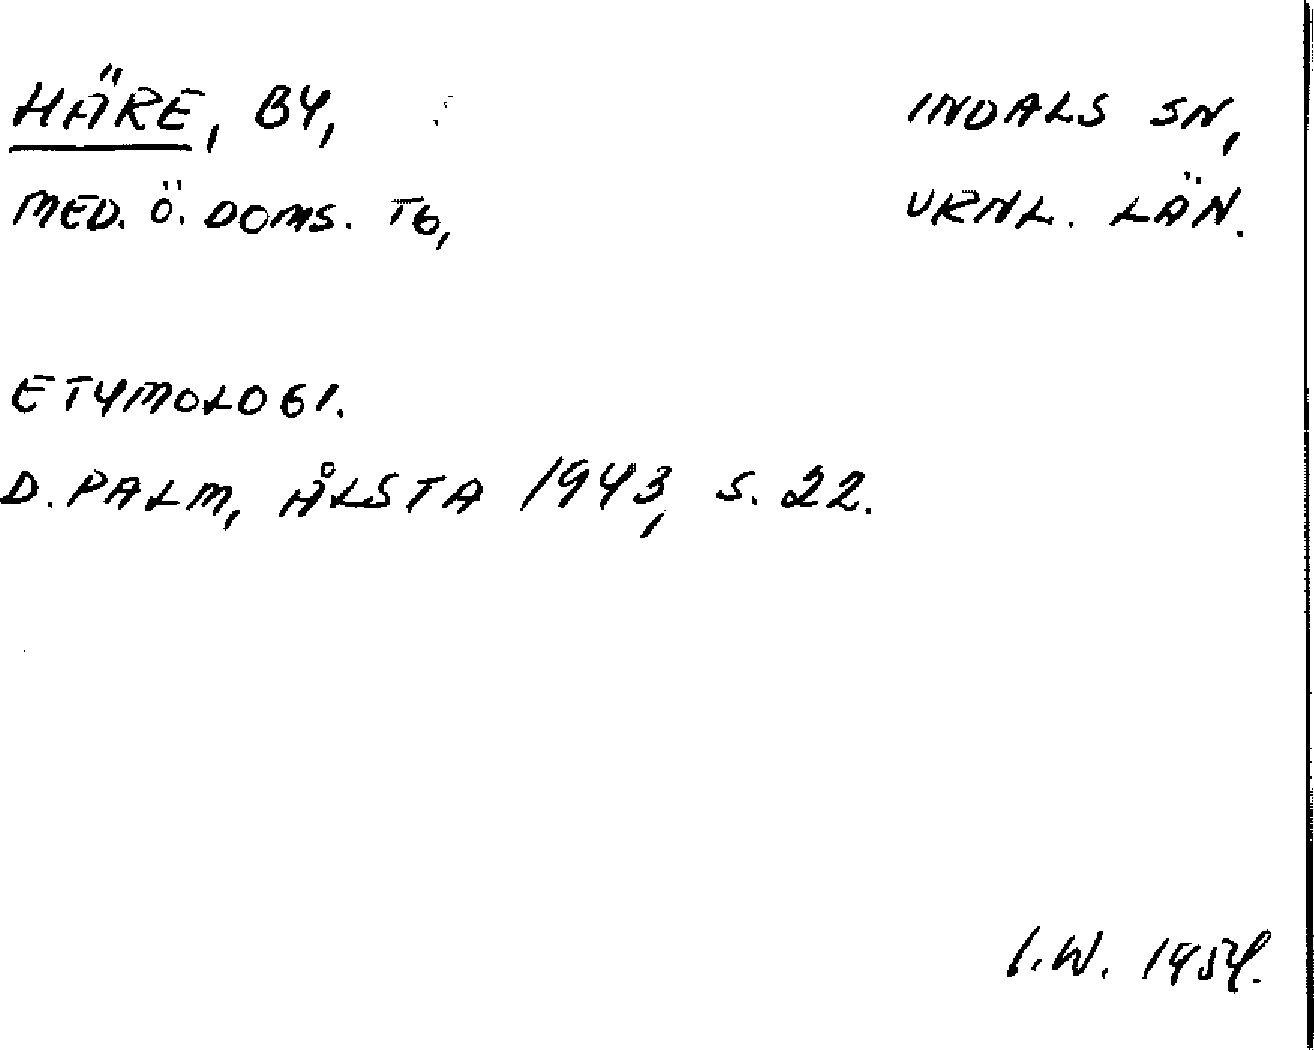 HÄRE, BY, INDALS SN,
MED. Ö. DOMS. TG, VRNL. LÄN.
ETYMOLOGI.
D. PALM, ÅLSTA 1943, S. 22.
I.W. 1954.